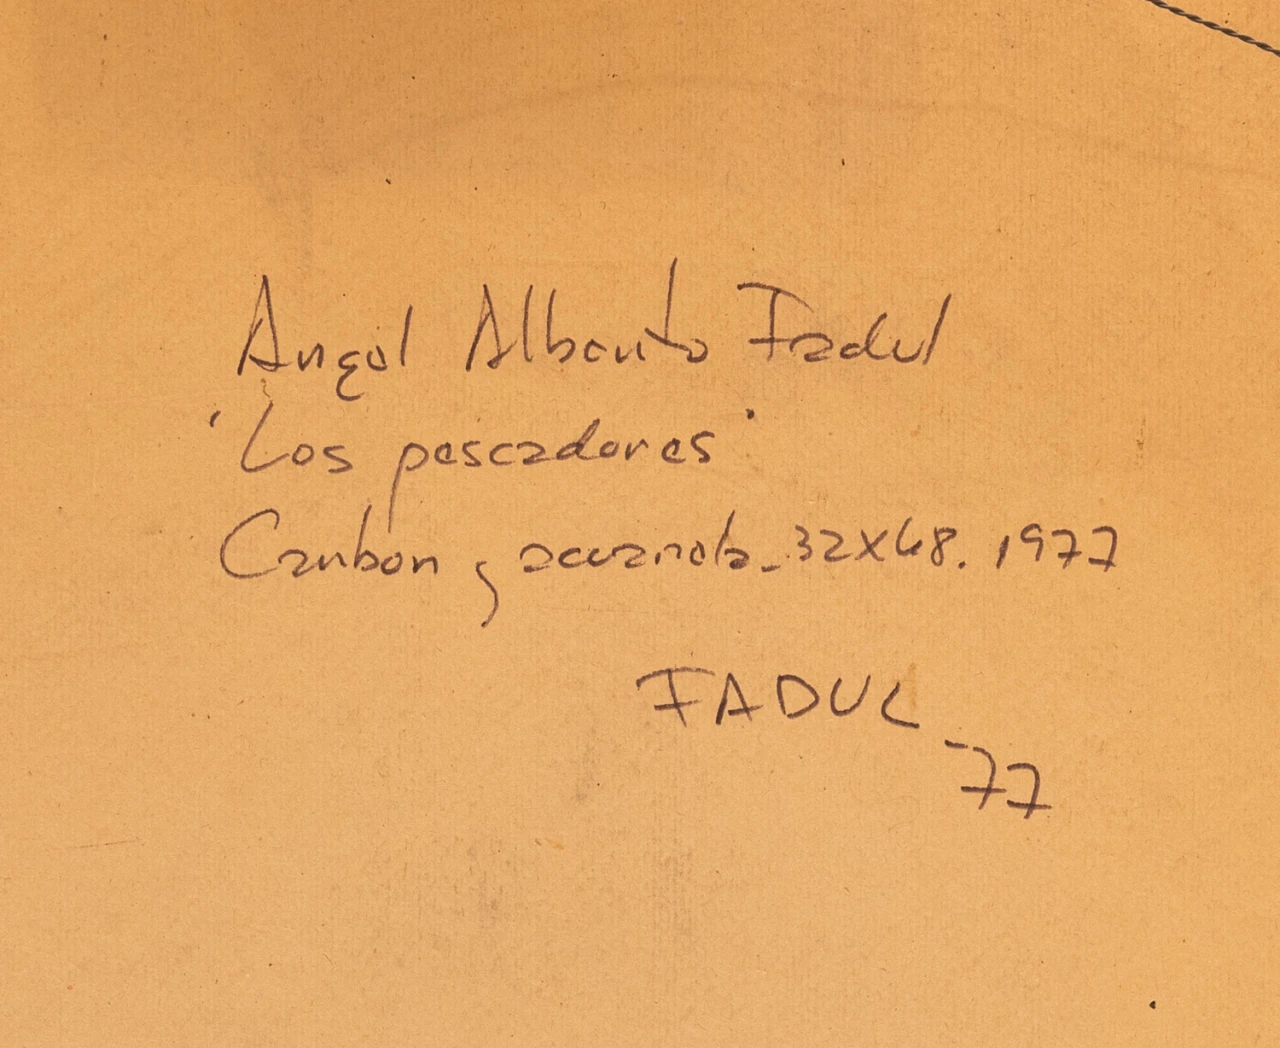 Angel Alberto Fadul
"Los pescadores"
Carbon y acuarela_32X48. 1977
FADUL
-77